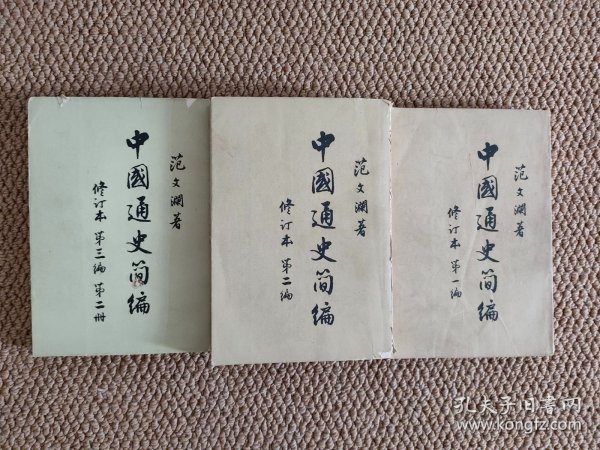 范文澜著
中國通史简编
修订本 第三编 第二册
范文澜著
中國通史简编
修订本 第二编
范文澜著
中國通史简编
修订本 第一编
孔夫子旧書网
www.kongfz.com